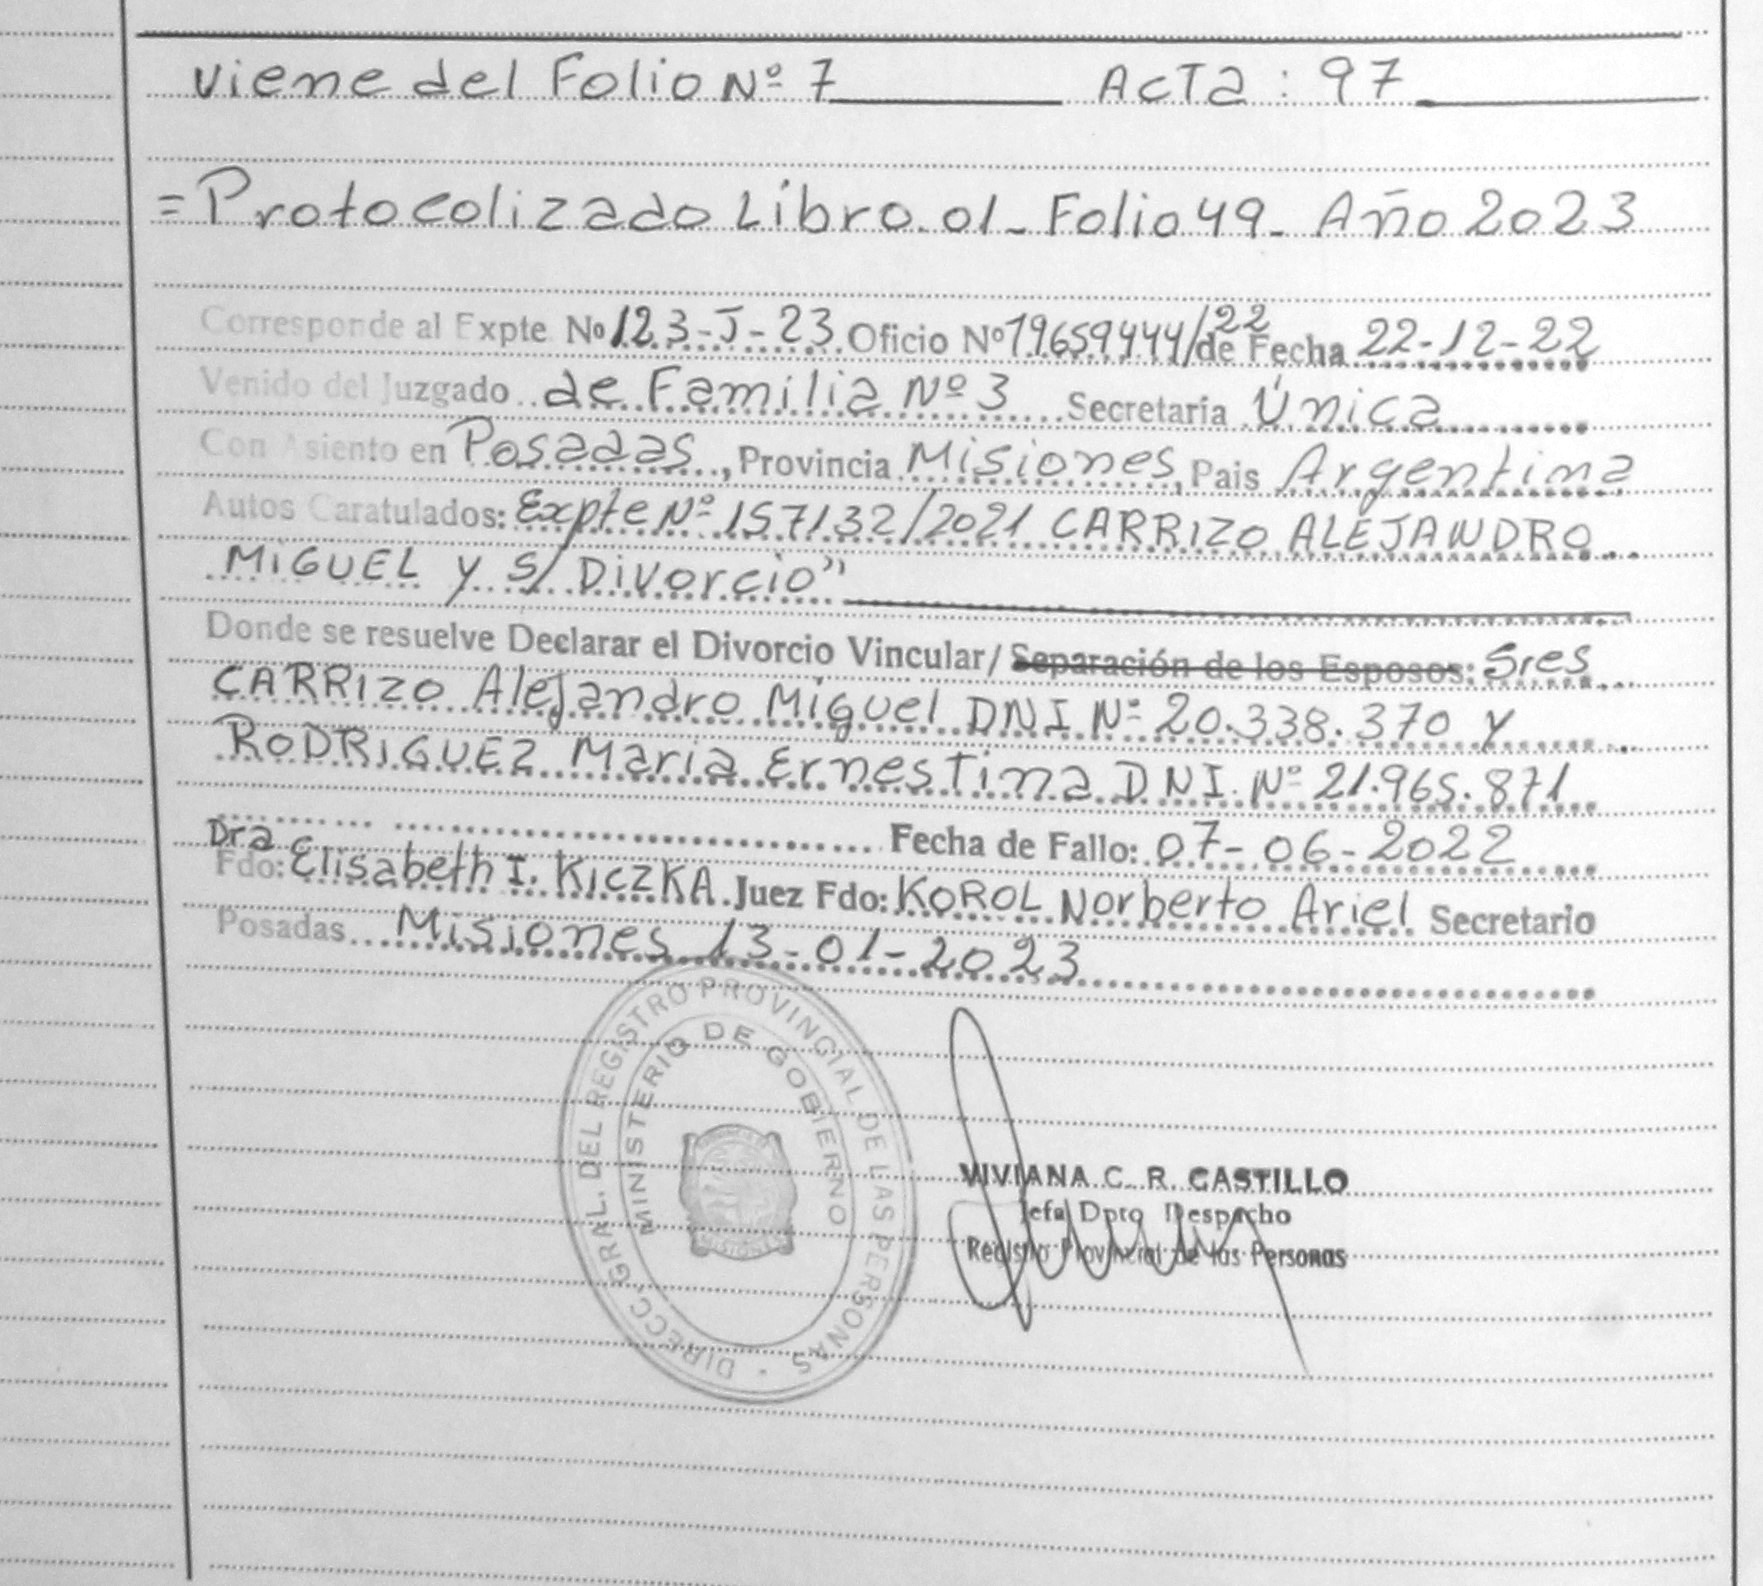 Viene del Folio Nº 7 Acta: 97
=Protocolizado Libro 01_ Folio 49_ Año 2023
Corresponde al Expte Nº 123-J-23 Oficio Nº 19659444/22 de Fecha 22-12-22
Venido del Juzgado de Familia Nº 3 Secretaria Única
Con Asiento en Posadas, Provincia Misiones, Pais Argentina
Autos Caratulados: Expte Nº 157132/2021 CARRIZO ALEJANDRO
MIGUEL y s/ Divorcio"
Donde se resuelve Declarar el Divorcio Vincular/ Separación de los Esposos: Sres
CARRIZO Alejandro Miguel DNI Nº 20.338.370 y
RODRIGUEZ Maria Ernestina DNI. Nº 21.965.871
Fecha de Fallo: 07-06-2022
Fdo: Dra Elisabeth I. KICZKA. Juez Fdo: KOROL Norberto Ariel Secretario
Posadas Misiones 13-01-2023
DIRECC. GRAL. DEL REGISTRO PROVINCIAL DE LAS PERSONAS
MINISTERIO DE GOBIERNO
MISIONES
VIVIANA C. R. CASTILLO
Jefa Dpto Despacho
Registro Provincial de las Personas